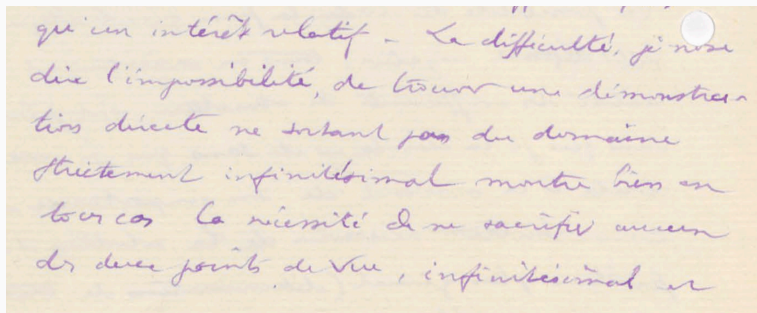 qu'un intérêt relatif – La difficulté, je n'ose
dire l'impossibilité, de trouver une démonstra-
tion directe ne sortant pas du domaine
strictement infinitésimal montre bien en
tous cas la nécessité de ne sacrifier aucun
des deux points de vue, infinitésimal et